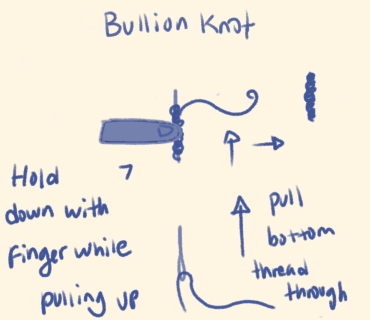 Bullion Knot
Hold
down with
finger while
pulling up
pull
bottom
thread
through